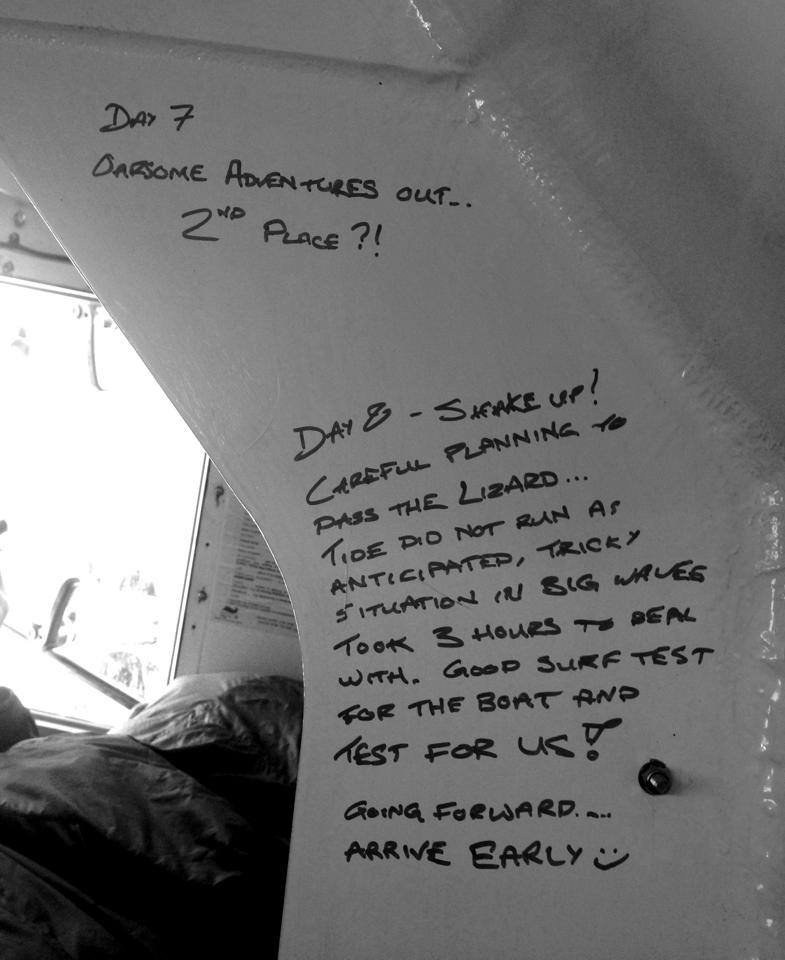 DAY 7
OARSOME ADVENTURES OUT...
2ND PLACE?!
DAY 8 - SHAKE UP!
CAREFUL PLANNING TO
PASS THE LIZARD...
TIDE DID NOT RUN AS
ANTICIPATED, TRICKY
SITUATION IN BIG WAVES
TOOK 3 HOURS TO DEAL
WITH. GOOD SURF TEST
FOR THE BOAT AND
TEST FOR US!
GOING FORWARD....
ARRIVE EARLY :)